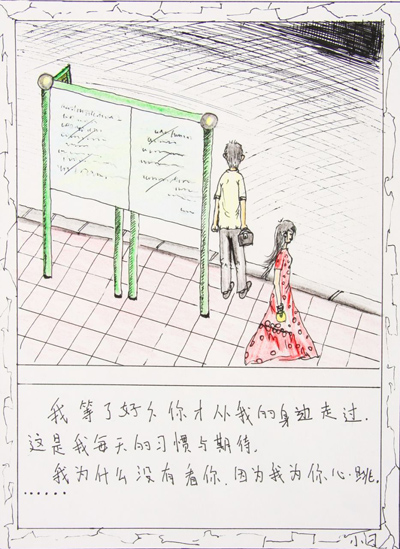 我等了好久你才从我的身边走过.
这是我每天的习惯与期待.
我为什么没有看你.因为我为你心跳.
......